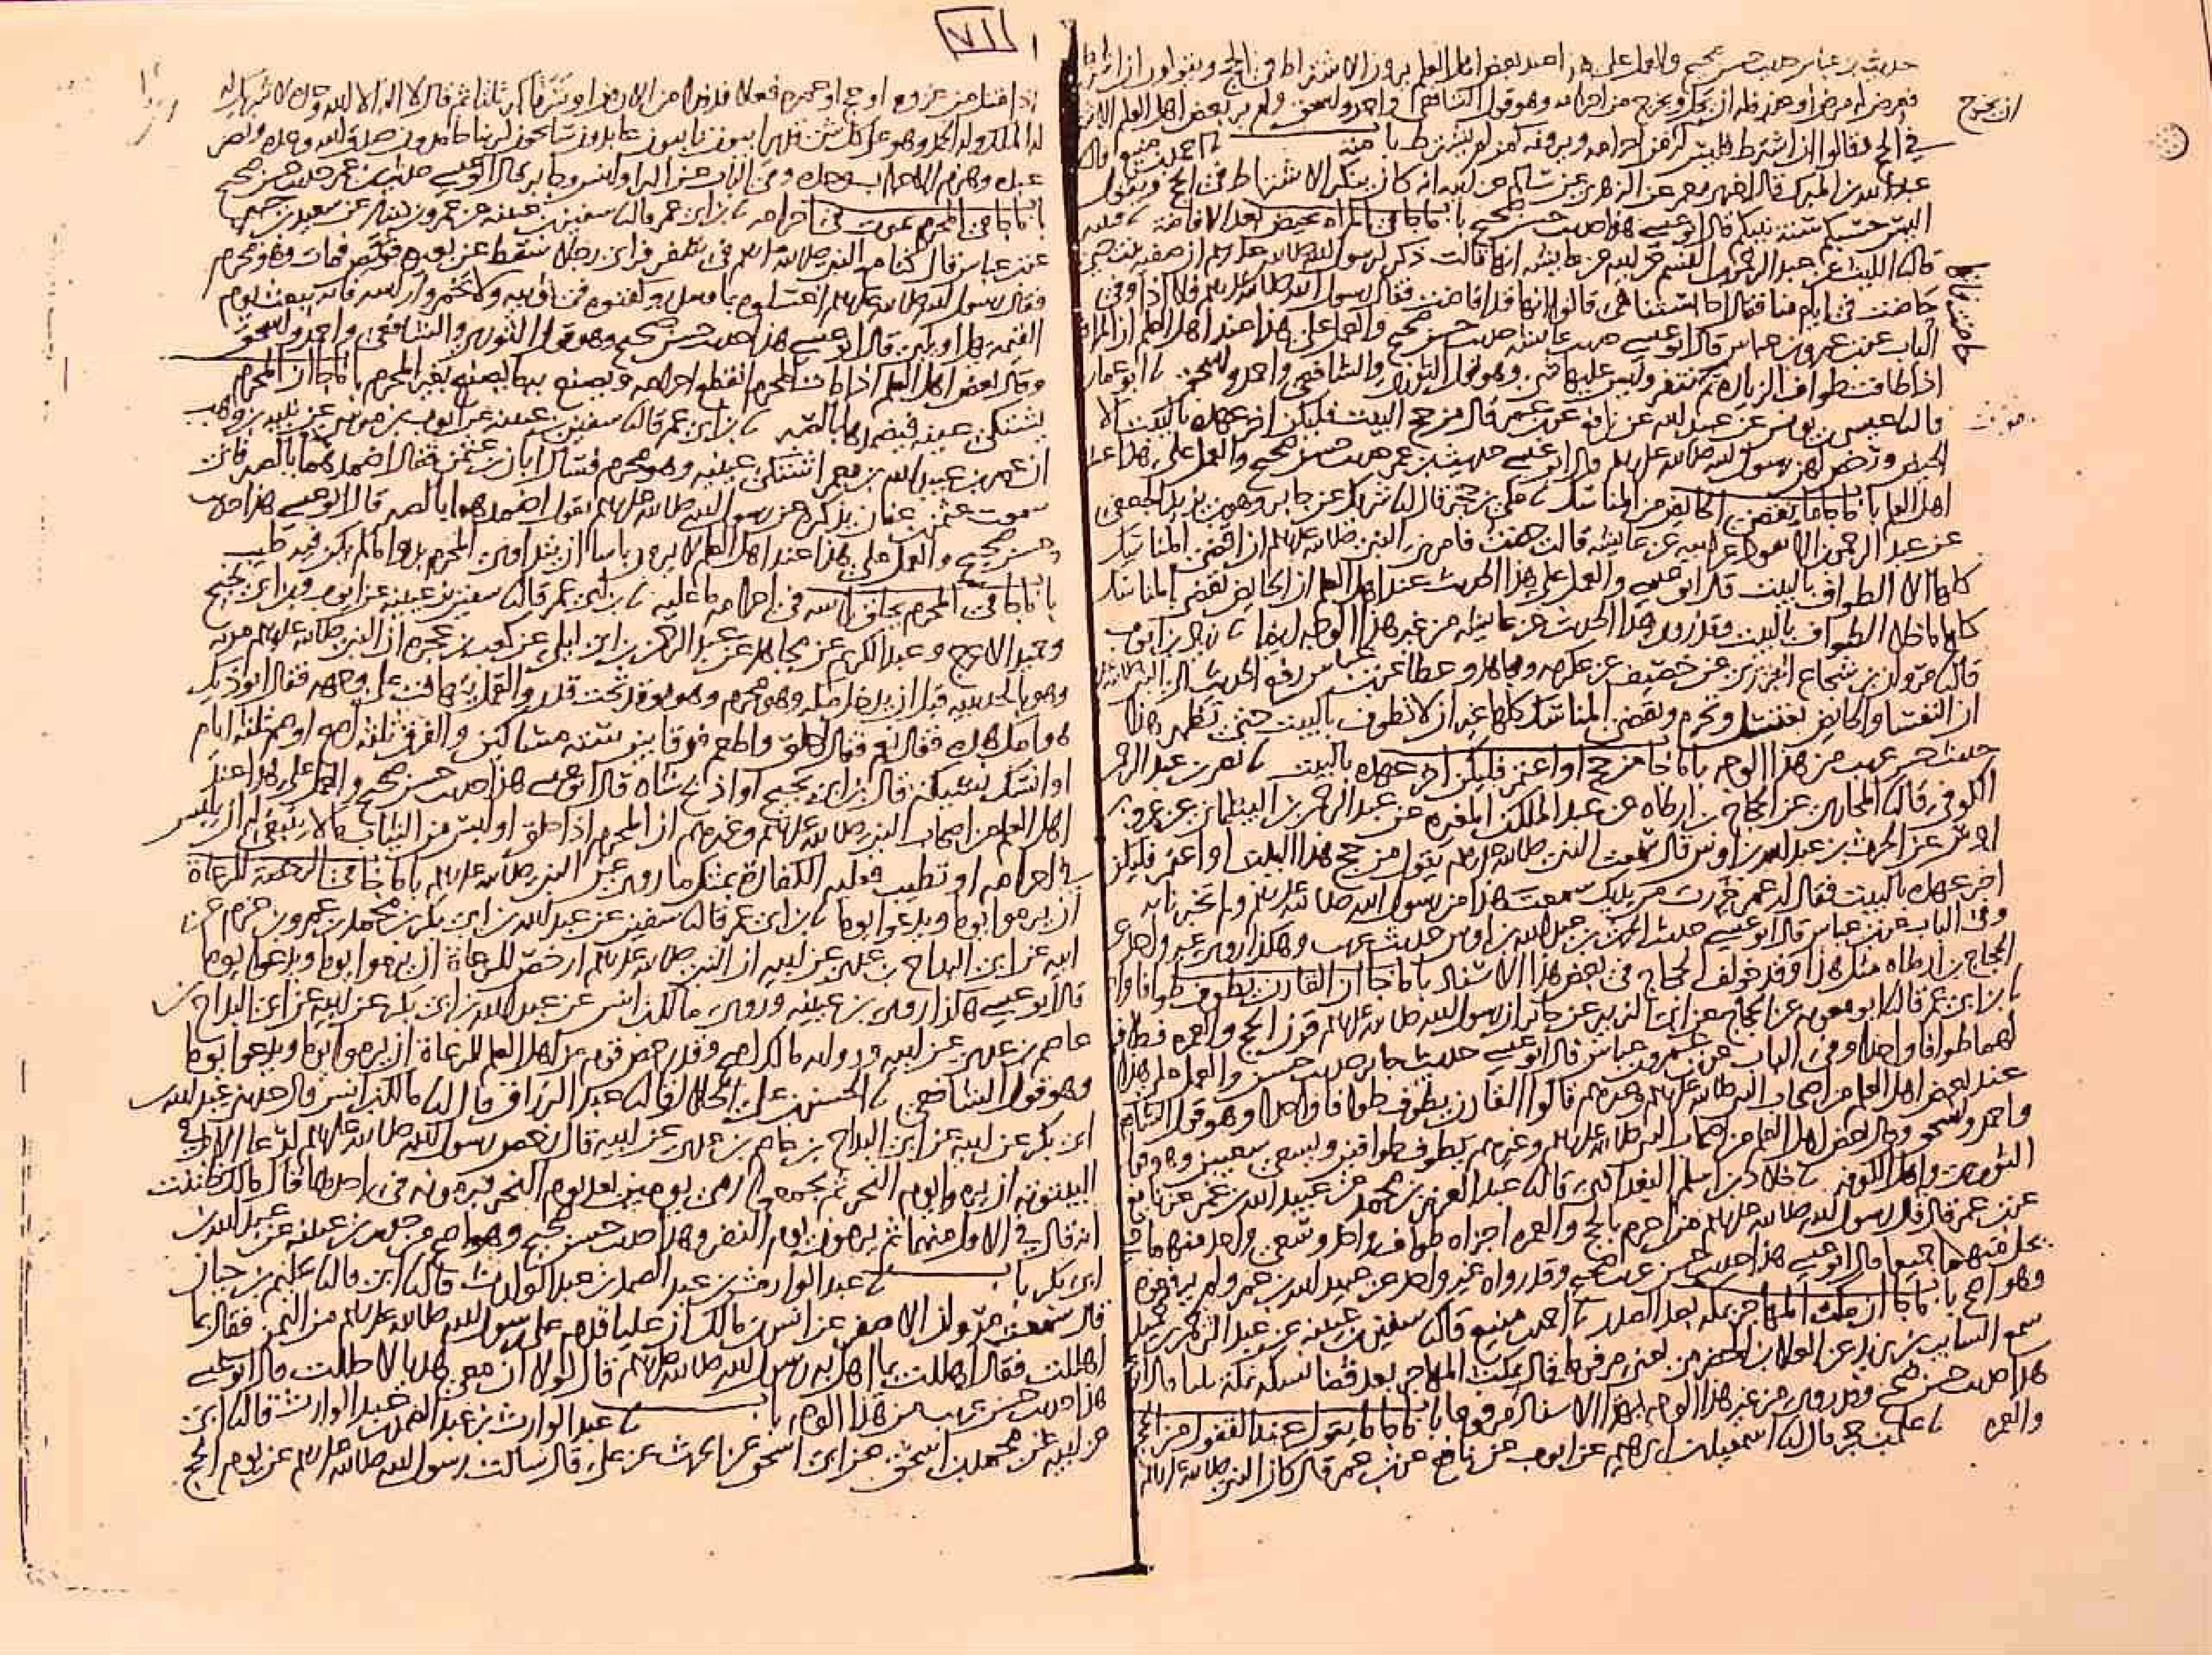 حديث بن عباس حديث حسن صحيح والعمل على هذا عند بعض اهل العلم يرون الاشتراط في الحج ويقولون ان اشترط
فعرض له مرض او عذر فله ان يحل ويخرج من احرامه وهو قول الشافعي واحمد واسحق ولم ير بعض اهل العلم الاشتراط
ان يخرج
في الحج فقالوا ان اشترط فليس له ان يخرج من احرامه ويرونه كمن لم يشترط باب منه احمد بن منيع قال
عبد الله بن المبرك قال اخبرني معمر عن الزهري عن سالم عن ابيه انه كان ينكر الاشتراط في الحج ويقول
اليس حسبكم سنة نبيكم قال ابو عيسى هذا حديث حسن صحيح باب ما جا في المراه تحيض بعد الافاضة قتيبه
قال نا الليث عن عبد الرحمن بن القسم عن ابيه عن عايشه انها قالت ذكر لرسول الله صلى الله عليه وسلم ان صفيه بنت حيي
حاضت في ايام منا فقال احابستنا هي قالوا انها قد افاضت فقال رسول الله صلى الله عليه وسلم فلا اذا وفي
الباب عن بن عمر وبن عباس قال ابو عيسى حديث عايشه حديث حسن صحيح والعمل على هذا عند اهل العلم ان المراة
اذا طافت طواف الزيارة ثم تنفر وليس عليها شي وهو قول الثوري والشافعي واحمد واسحق ابو عمار
قال نا عيسى بن يونس عن عبيد الله عن نافع عن بن عمر قال من حج البيت فليكن اخر عهده بالبيت الا
الحيض ورخص لهن رسول الله صلى الله عليه وسلم قال ابو عيسى حديث بن عمر حديث حسن صحيح والعمل على هذا عند
اهل العلم باب ما جا ما تقضي الحايض من المناسك علي بن حجر قال نا شريك عن جابر وهو بن يزيد الجعفي
عن عبد الرحمن بن الاسود عن ابيه عن عايشه قالت حضت فامرني النبي صلى الله عليه وسلم ان اقضي المناسك
كلها الا الطواف بالبيت قال ابو عيسى والعمل على هذا الحديث عند اهل العلم ان الحايض تقضي المناسك
كلها ما خلا الطواف بالبيت وقد روي هذا الحديث عن عايشه من غير هذا الوجه ايضا زياد بن ايوب
قال نا مروان بن شجاع الجزري عن خصيف عن عكرمه ومجاهد وعطا عن بن عباس رفع الحديث الى
ان النفسا والحايض تغتسل وتحرم وتقضي المناسك كلها غير ان لا تطوف بالبيت حتى تطهر هذا
حديث حسن غريب من هذا الوجه باب ما جا من حج او اعتمر فليكن اخر عهده بالبيت نصر بن عبد الرحمن
الكوفي قال نا المحاربي عن الحجاج بن ارطاه عن عبد الملك بن المغيره عن عبد الرحمن بن البيلماني عن عمرو بن
اوس عن الحرث بن عبد الله بن اوس قال سمعت النبي صلى الله عليه وسلم يقول من حج هذا البيت او اعتمر فليكن
اخر عهده بالبيت فقال له عمر خررت من يديك سمعت هذا من رسول الله صلى الله عليه وسلم ولم تخبرنا به
وفي الباب عن بن عباس قال ابو عيسى حديث الحرث بن عبد الله بن اوس حديث غريب وهكذا روى غير واحد عن
الحجاج بن ارطاه مثل هذا وقد خولف الحجاج في بعض هذا الاسناد باب ما جا ان القارن يطوف طوافا واحدا
بن ابي عمر قال نا ابو معويه عن الحجاج عن ابي الزبير عن جابر ان رسول الله صلى الله عليه وسلم قرن الحج والعمره فطاف
لهما طوافا واحدا وفي الباب عن بن عمر وبن عباس قال ابو عيسى حديث جابر حديث حسن والعمل على هذا
عند بعض اهل العلم من اصحاب النبي صلى الله عليه وسلم وغيرهم قالوا القارن يطوف طوافا واحدا وهو قول الشافعي
واحمد واسحق وقال بعض اهل العلم من اصحاب النبي صلى الله عليه وسلم وغيرهم يطوف طوافين ويسعى سعيين وهو قول
الثوري واهل الكوفه خلاد بن اسلم البغدادي قال نا عبد العزيز بن محمد عن عبيد الله بن عمر عن نافع
عن بن عمر قال قال رسول الله صلى الله عليه وسلم من احرم بالحج والعمره اجزاه طواف واحد وسعي واحد منهما حتى
يحل منهما جميعا قال ابو عيسى هذا حديث حسن غريب صحيح وقد رواه غير واحد عن عبيد الله بن عمر ولم يرفعوه
وهو اصح باب ما جا ان مكث المهاجر بمكه بعد الصدر احمد بن منيع قال نا سفين بن عيينه عن عبد الرحمن بن حميد
سمع السايب بن يزيد عن العلا بن الحضرمي يعني مرفوعا قال يمكث المهاجر بعد قضا نسكه بمكه ثلثا قال ابو
هذا حديث حسن صحيح وقد روي من غير هذا الوجه بهذا الاسناد مرفوعا باب ما جا ما يقول عند القفول من الحج
والعمره علي بن حجر قال نا اسمعيل بن ابرهيم عن ايوب عن نافع عن بن عمر قال كان النبي صلى الله عليه وسلم
٧١١
اذا قفل من غزوه او حج او عمره فعلا فدفدا من الارض او شرفا كبر ثلثا ثم قال لا اله الا الله وحده لا شريك له
له الملك وله الحمد وهو على كل شي قدير ايبون تايبون عابدون سايحون لربنا حامدون صدق الله وعده ونصر
عبده وهزم الاحزاب وحده وفي الباب عن البرا وانس وجابر قال ابو عيسى حديث بن عمر حديث حسن صحيح
باب ما جا في المحرم يموت في احرامه بن ابي عمر قال نا سفين بن عيينه عن عمرو بن دينار عن سعيد بن جبير
عن بن عباس قال كنا مع النبي صلى الله عليه وسلم في سفر فراى رجلا سقط عن بعيره فوقص فمات وهو محرم
فقال رسول الله صلى الله عليه وسلم اغسلوه بما وسدر وكفنوه في ثوبيه ولا تخمروا راسه فانه يبعث يوم
القيمه يهل او يلبي قال ابو عيسى هذا حديث حسن صحيح وهو قول الثوري والشافعي واحمد واسحق
وقال بعض اهل العلم اذا مات المحرم انقطع احرامه ويصنع به كما يصنع بغير المحرم باب ما جا ان المحرم
يشتكي عينه فيضمدها بالصبر بن ابي عمر قال نا سفين بن عيينه عن ايوب بن موسى عن نبيه بن وهب
ان عمر بن عبيد الله بن معمر اشتكى عينيه وهو محرم فسال ابان بن عثمن فقال اضمدهما بالصبر فاني
سمعت عثمن بن عفان يذكرها عن رسول الله صلى الله عليه وسلم يقول اضمدهما بالصبر قال ابو عيسى هذا حديث
حسن صحيح والعمل على هذا عند اهل العلم لا يرون باسا ان يتداوى المحرم بدوا ما لم يكن فيه طيب
باب ما جا في المحرم يحلق راسه في احرامه ما عليه بن ابي عمر قال نا سفين بن عيينه عن ايوب وبن ابي نجيح
وحميد الاعرج وعبد الكريم عن مجاهد عن عبد الرحمن بن ابي ليلى عن كعب بن عجره ان النبي صلى الله عليه وسلم مر به
وهو بالحديبيه قبل ان يدخل مكه وهو محرم وهو يوقد تحت قدر والقمل يتهافت على وجهه فقال اتوذيك
هوامك هذه فقال نعم فقال احلق واطعم فرقا بين سته مساكين والفرق ثلثه اصع او صم ثلثه ايام
او انسك نسيكه قال بن ابي نجيح او اذبح شاه قال ابو عيسى هذا حديث حسن صحيح والعمل على هذا عند
اهل العلم من اصحاب النبي صلى الله عليه وسلم وغيرهم ان المحرم اذا حلق او لبس من الثياب ما لا ينبغي له ان يلبس
في احرامه او تطيب فعليه الكفارة بمثل ما روي عن النبي صلى الله عليه وسلم باب ما جا في الرخصة للرعاة
ان يرموا يوما ويدعوا يوما بن ابي عمر قال نا سفين عن عبد الله بن ابي بكر بن محمد بن عمرو بن حزم عن
ابيه عن ابي البداح بن عدي عن ابيه ان النبي صلى الله عليه وسلم ارخص للرعاة ان يرموا يوما ويدعوا يوما
قال ابو عيسى هكذا روى بن عيينه وروى مالك بن انس عن عبد الله بن ابي بكر عن ابيه عن ابي البداح بن
عاصم بن عدي عن ابيه وروايه مالك اصح وقد رخص قوم من اهل العلم للرعاة ان يرموا يوما ويدعوا يوما
وهو قول الشافعي الحسن بن علي الخلال قال نا عبد الرزاق قال نا مالك بن انس قال حدثني عبد الله بن
ابي بكر عن ابيه عن ابي البداح بن عاصم بن عدي عن ابيه قال رخص رسول الله صلى الله عليه وسلم لرعا الابل في
البيتوته ان يرموا يوم النحر ثم يجمعوا رمي يومين بعد يوم النحر فيرمونه في احدهما قال مالك ظننت
انه قال في الاول منهما ثم يرمون يوم النفر وهذا حديث حسن صحيح وهو اصح من حديث بن عيينه عن عبد الله بن
ابي بكر باب عبد الوارث بن عبد الصمد بن عبد الوارث قال نا ابي قال نا سليم بن حيان
قال سمعت مروان الاصفر عن انس بن مالك ان عليا قدم على رسول الله صلى الله عليه وسلم من اليمن فقال بما
اهللت فقال اهللت بما اهل به رسول الله صلى الله عليه وسلم قال لولا ان معي هديا لاحللت قال ابو عيسى
هذا حديث حسن غريب من هذا الوجه باب عبد الوارث بن عبد الصمد بن عبد الوارث قال نا ابي
عن ابيه عن محمد بن اسحق عن ابي اسحق عن الحرث عن علي قال سالت رسول الله صلى الله عليه وسلم عن يوم الحج